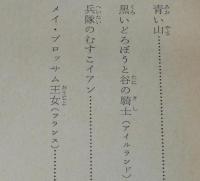 青い山…………
黒いどろぼうと谷の騎士（アイルランド）……
兵隊のむすこイアン…………
メイ・ブロッサム王女（フランス）……